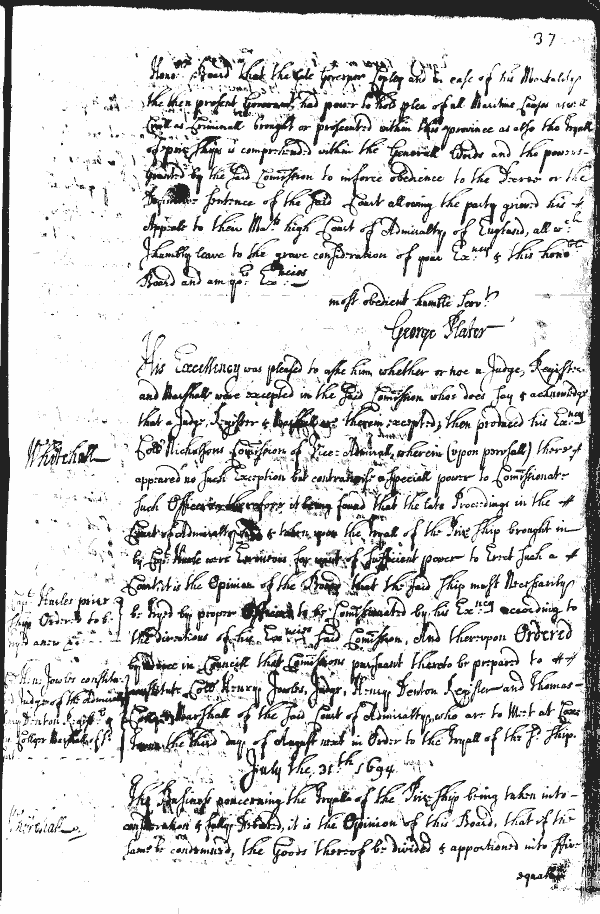 37
Hono:ble Board that the late Governor Copley and in case of his Mortality
the then present Governor, had power to hold plea of all Maritime Causes as well
Civill as Criminall brought or prosecuted within this province as also the Tryall
of prize Ships is comprehended within the Generall Words and the powers
Granted by the said Comission to inforce obedience to the Decree or the
Definitive Sentence of the said Court allowing the party grieved his
Appeale to their Ma:ts high Court of Admiralty of England, all w:ch
I humbly leave to the grave consideration of your Ex:ncy & this hono:ble
Board and am yo:r Ex:ncies
most obedient humble Serv:t
George Plater
His Excellency was pleased to aske him whether or noe a Judge, Register
and Marshall were excepted in the said Comission who does say & acknowledge
that a Judge, Register & Marshall are therein excepted, then produced his Ex:ncy
Coll: Nicholsons Comission of Vice: Admirall, wherein (upon perusall) there
Whitehall
appeared no such Exception but contrariwise a speciall power to Comissionate
such Officers therefore it being found that the late Proceedings in the
Court of Admiralty & taken upon the Tryall of the Prize Ship brought in
by Cap:t were for want of sufficient power to Erect such a
Court it is the Opinion of the Board that the said Ship must Necessarily
be tryed by proper Officers to be Comissionated by his Ex:ncy according to
the directions of his Ex:ncies said Comission, And thereupon Ordered
Ship Order'd to b:
by in Councill that Comissions pursuant thereto be prepared to
constitute Coll: Henry Jowles, Judge, Henry Denton Register and Thomas
Hen: Jowles constitu:
Judge of the Admiral
Denton Regist:r
Collyer Marshall
Collyer Marshall of the said Court of Admiralty, who are to Meet at
the third day of August next in Order to the Tryall of the s:d Ship.
July the 31:th 1694
The Business concerning the Tryall of the Prize Ship being taken into
Whitehall
consideration & fully Debated, it is the Opinion of this Board, that if the
same be condemned, the Goods thereof be divided & apportioned into ffive
equall